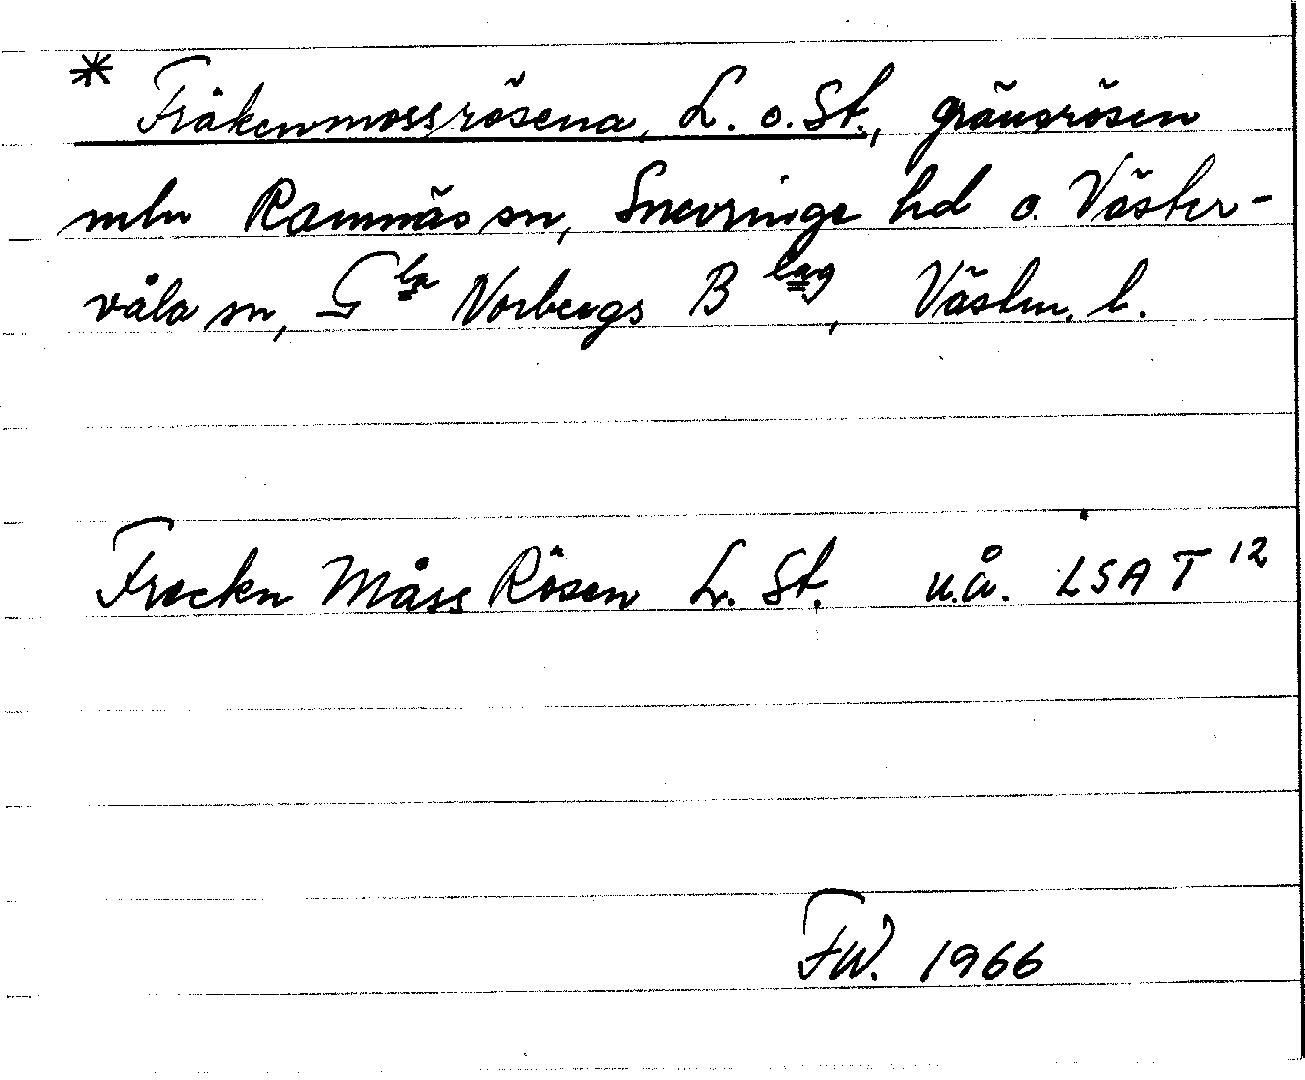 * Fräkenmossrösena, L. o. St., gränsrösen
mln Ramnäs sn, Snevringe hd o. Väster-
våla sn, Gla Norbergs Blag, Västm. l.
Freckn Måss Rösen L. St. u.å. LSA T 12
FW. 1966